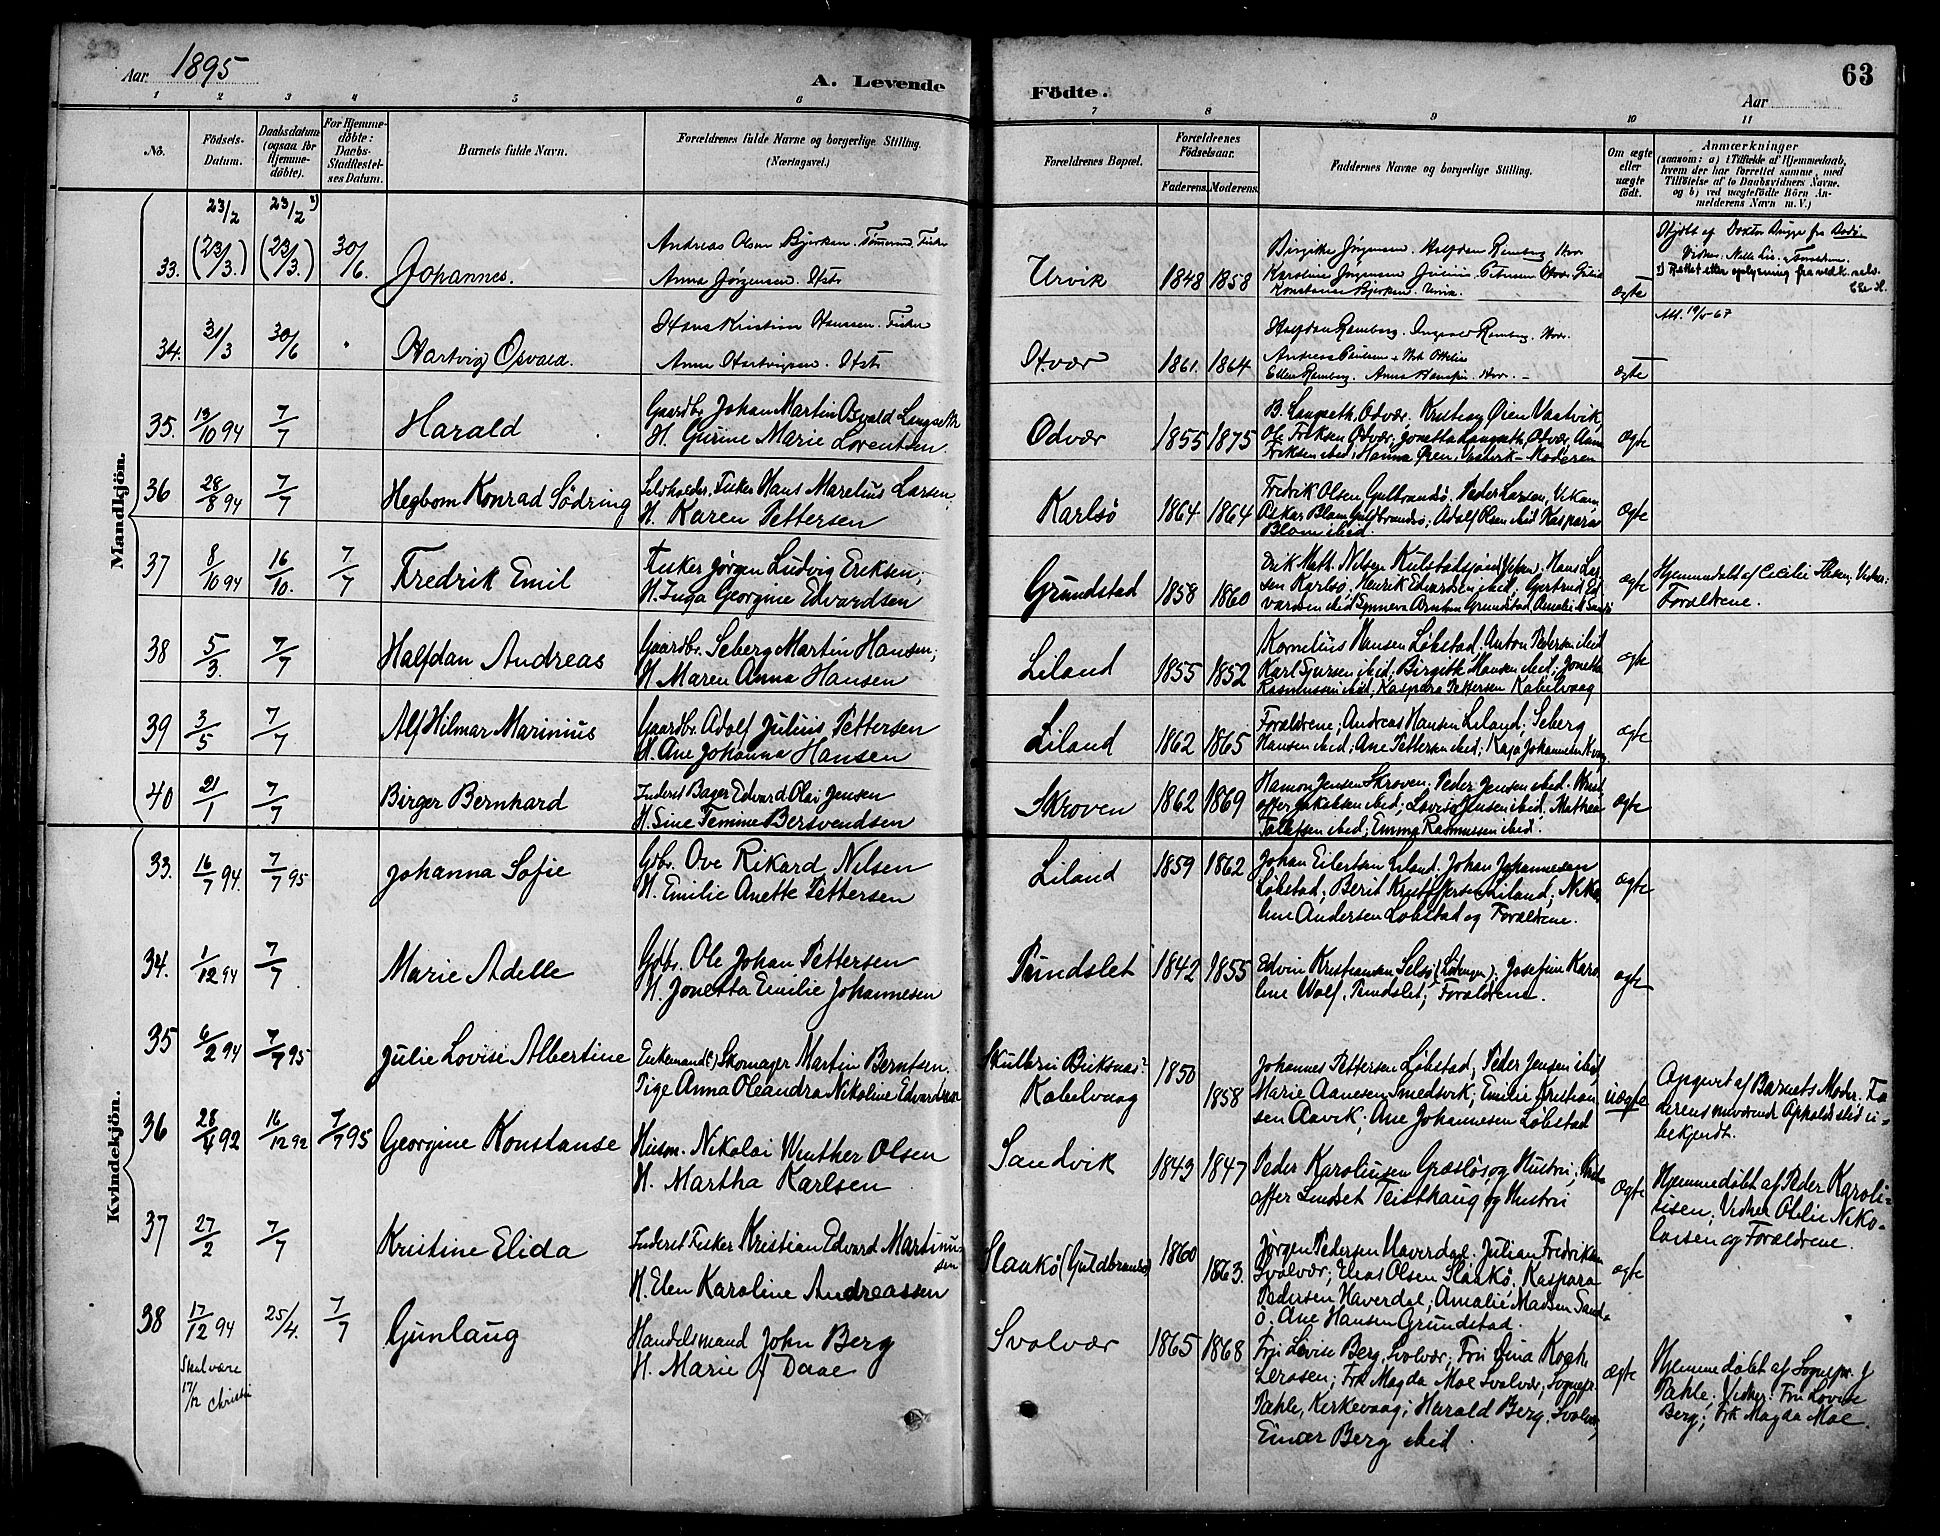 Aar 1895
A. Levende Födte.
63
Aar
1 2 3 4 5 6 7 8 9 10 11
No.
Födsels-Datum.
Daabsdatum (ogsaa for Hjemme-döbte).
For Hjemme-döbte: Daabs-Stadfæstel-ses Datum.
Barnets fulde Navn.
Forældrenes fulde Navne og borgerlige Stilling.
(Næringsvei.)
Forældrenes Bopæl.
Forældrenes Födselsaar.
Faderens. Moderens.
Faddernes Navne og borgerlige Stilling.
Om ægte eller uægte födt.
Anmærkninger
(saasom: a) i Tilfælde af Hjemmedaab,
hvem der har forrettet samme, med
Tilföielse af to Daabsvidners Navne.
og b) ved uægtefödte Börn An-
melderens Navn m. V.)
Mandkjön.
23/2 23/2 1)
33. (23/3.) (23/3.) 30/6. Johannes.
Andreas Olsen Bjerkan. Tømmerm. Fisker
Anna Jørgensen. Hst
Urvik 1848 1858
Karoline Jørgensen Julius Petersen
Konstanse Bjerken. Urvik.
Ægte
34. 31/3 30/6 " Hartvig Osvald.
Hans Kristian Hanssen. Fisker
Anne Hartvigsen. Hst
Hvær 1861. 1864
Halfdan Ramberg. Ingvald Ramberg. Hvr.
Ellen Ramberg. Anna Hansen. Hvr. -
Ægte
Att. 19/5 67
35. 13/10 94 7/7 Harald
Gaardbr. Johan Martin Osvald Langseth
H. Gurine Marie Lorentsen
Odvær 1855 1875
B. Langseth, Odvær; Kristian Øien Vaatvik,
Ol. Eriksen Odvær; Jonetta Langseth, Odvær, Anne
Eriksen ibid; Hanna Øien, Vaatvik - Moderen
Ægte
36 28/8 94 7/7 Hegbom Konrad Södring
Selvholder. Fisker Hans Marelius Larsen,
H. Karen Pettersen
Karlsö 1864 1864
Fredrik Olsen, Gulbrandsö. Peder Larsen, Vikan
Oskar Blom Guldbrandsö, Adolf Olsen ibid Kaspara
Blom ibid.
Ægte
37 8/10 94 16/10. 7/7 Fredrik Emil
Fisker Jørgen Ludvig Eriksen;
H. Inga Georgine Edvardsen
Grundstad 1858 1860
Erik Math. Nilsen Kulstadsjøen; Hans Lar
sen Karlsö; Henrik Edvardsen ibid; Gjertrud Ed
vardsen ibid; Synneva Arntsen Grundstad
Ægte
Hjemmedøbt af Cecilie Vidner:
Forældrene.
38 5/3. 7/7 Halfdan Andreas
Gaardbr. Seberg Martin Hansen;
H. Maren Anna Hansen
Liland 1855 1852
Kornelius Hansen Løbstad; Anton Pedersen ibid
Karl Sjursen ibid; Birgitte Hansen ibid; Jonetta
Rasmussen ibid, Kaspara Pettersen Kabelvaag
Ægte
39 3/5 7/7 Alf Hilmar Marinius
Gaardbr. Adolf Julius Pettersen
H. Ane Johanna Hansen
Liland 1862 1865
Forældrene; Andreas Hansen Liland; Seberg
Hansen ibid; Ane Pettersen ibid; Kaja Johannesen
Ægte
40 21/1 7/7 Birger Bernhard
Inderst Bager Edvard Olai Jensen
H. Sine Temme Bersvendsen
Skroven 1862 1869
Hamon Jensen Skroven; Peder Jensen ibid. Krist
offer Jakobsen ibid; Lovise Jensen ibid. Mathea
Tollefsen ibid; Emma Rasmussen ibid.
Ægte
Kvindekjön.
33. 16/7 94. 7/7 95 Johanna Sofie
Gdbr. Ove Rikard Nilsen
H. Emilie Anette Pettersen
Liland 1859 1862
Johan Eilertsen Liland. Johan Johannesen
Løbstad; Berit Kristoffersen Liland; Niko
line Andersen Løbstad og Forældrene.
Ægte
34. 1/12 94 7/7 Marie Adelle
Gdbr. Ole Johan Pettersen
H. Jonetta Emilie Johannesen
Pundslet 1842 1855
Edvin Kristiansen Selsö (Lødingen); Josefine Karo
line Wolf, Pundslet; Forældrene.
Ægte
35 6/2 94 7/7 95 Julie Lovise Albertine
Enkemand(?) Skomager Martin Berntsen.
Pige Anna Oleandra Nikoline Edvardsen
Kabelvaag 1850 1858
Johannes Pettersen Løbstad; Peder Jensen ibid,
Marie Aanesen Smedsvik; Emilie Kristian
sen Aavik; Ane Johannesen Løbstad
Uægte
Opgivet af Barnets Moder. Fa
derens nuværende Opholdssted u-
bekjendt.
36 28/4 92 16/12 92 7/7 95 Georgine Konstanse
Husm. Nikolai Winther Olsen
H. Martha Karlsen
Sandvik 1843 1847
Peder Karoliusen Græsløs og Hustru; Krist
offer Lindset Teisthaug og Hustru
Ægte
Hjemmedøbt af Peder Karoli-
usen; Vidner Otelie Niko-
laisen og Forældrene.
37 27/2 7/7 Kristine Elida
Inderst Fisker Kristian Edvard Martinus
sen
H. Elen Karoline Andreassen
Slaakö (Guldbrandsö) 1860 1863.
Jørgen Pedersen Haverdal. Julian Fredriksen
Svolvær; Enas Olsen Slaakö. Kaspara
Pedersen Haverdal; Amalie Madsen Sand-
ö. Ane Hansen Grundstad.
Ægte
38 17/12 94 25/4. 7/7 Gunlaug
Skal være
17/12 Christi
Handelsmand John Berg
H. Marie f Daae
Svolvær 1865 1868
Fru Lovise Berg, Svolvær; Fru Gina Koch
Lerosen; Frk Magda Moe Svolvær; Sognepr.
Pähle, Kirkevaag; Harald Berg, Svolvær,
Einar Berg ibid.
Ægte
Hjemmedøbt af Sognepr. J
Pähle; Vidner: Fru Lovise
Berg; Frk Magda Moe.